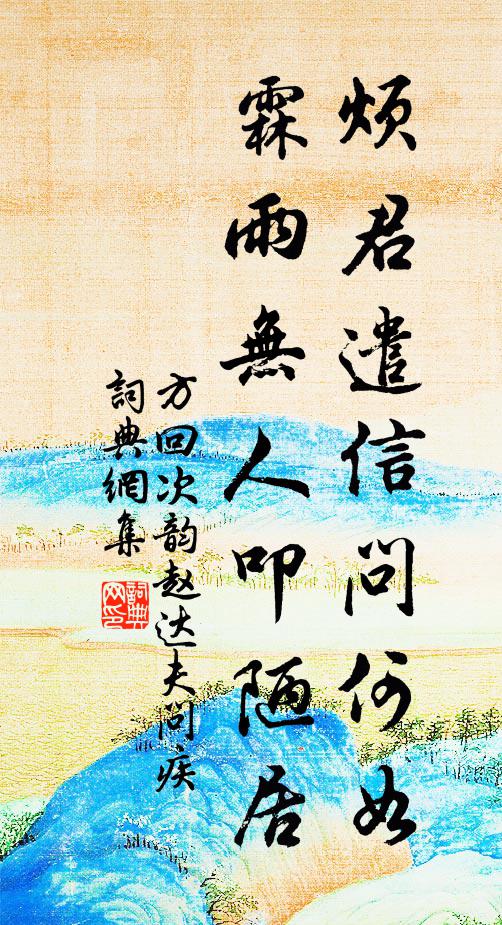 煩君遣信問何如
霖雨無人叩陋居
方回次韵赵达夫问疾
詞典網集
詞典
网印